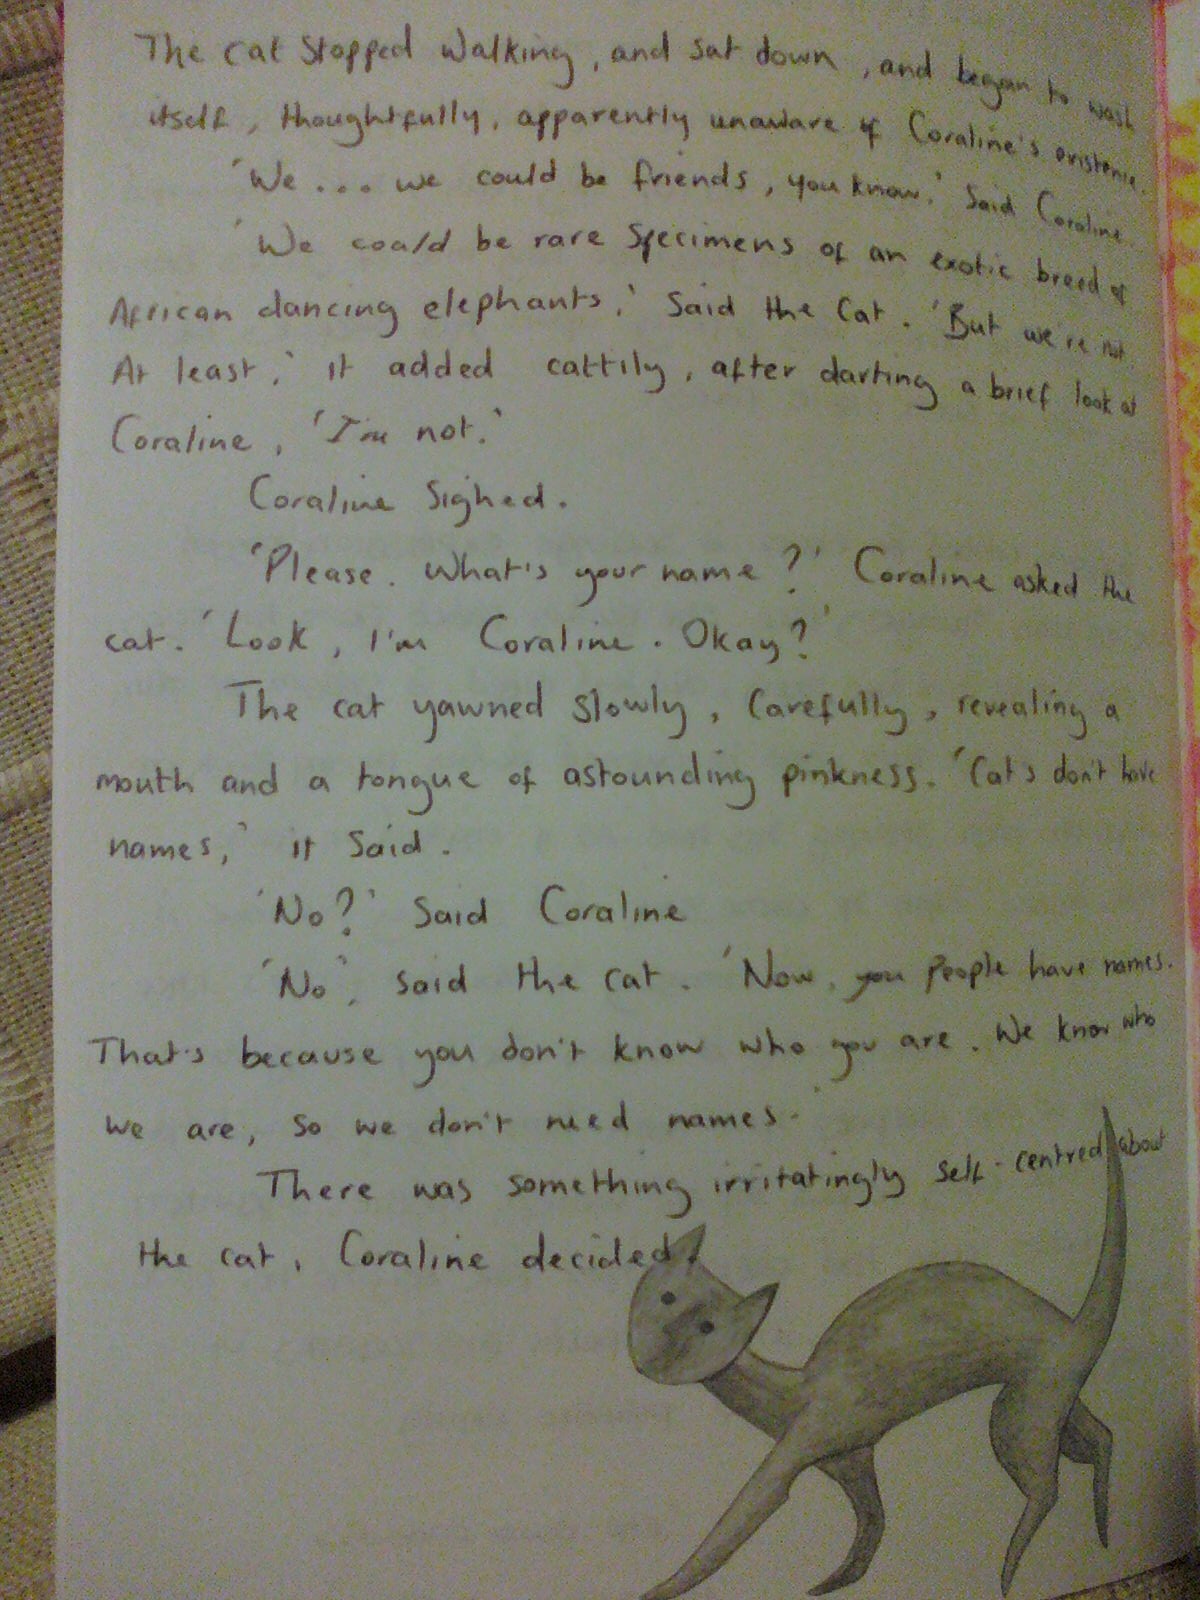 The cat stopped walking, and sat down, and began to wash
itself, thoughtfully, apparently unaware of Coraline's existence.
'We... we could be friends, you know.' Said Coraline.
'We could be rare specimens of an exotic breed of
African dancing elephants,' Said the Cat. 'But we're not.
At least,' it added cattily, after darting a brief look at
Coraline, 'I'm not.'
Coraline Sighed.
'Please. What's your name?' Coraline asked the
cat. 'Look, I'm Coraline. Okay?'
The cat yawned slowly, carefully, revealing a
mouth and a tongue of astounding pinkness. 'Cat's don't have
names,' it said.
'No?' said Coraline
'No', said the cat. 'Now, you people have names.
That's because you don't know who you are. We know who
we are, so we don't need names.'
There was something irritatingly self-centred about
the cat, Coraline decided.